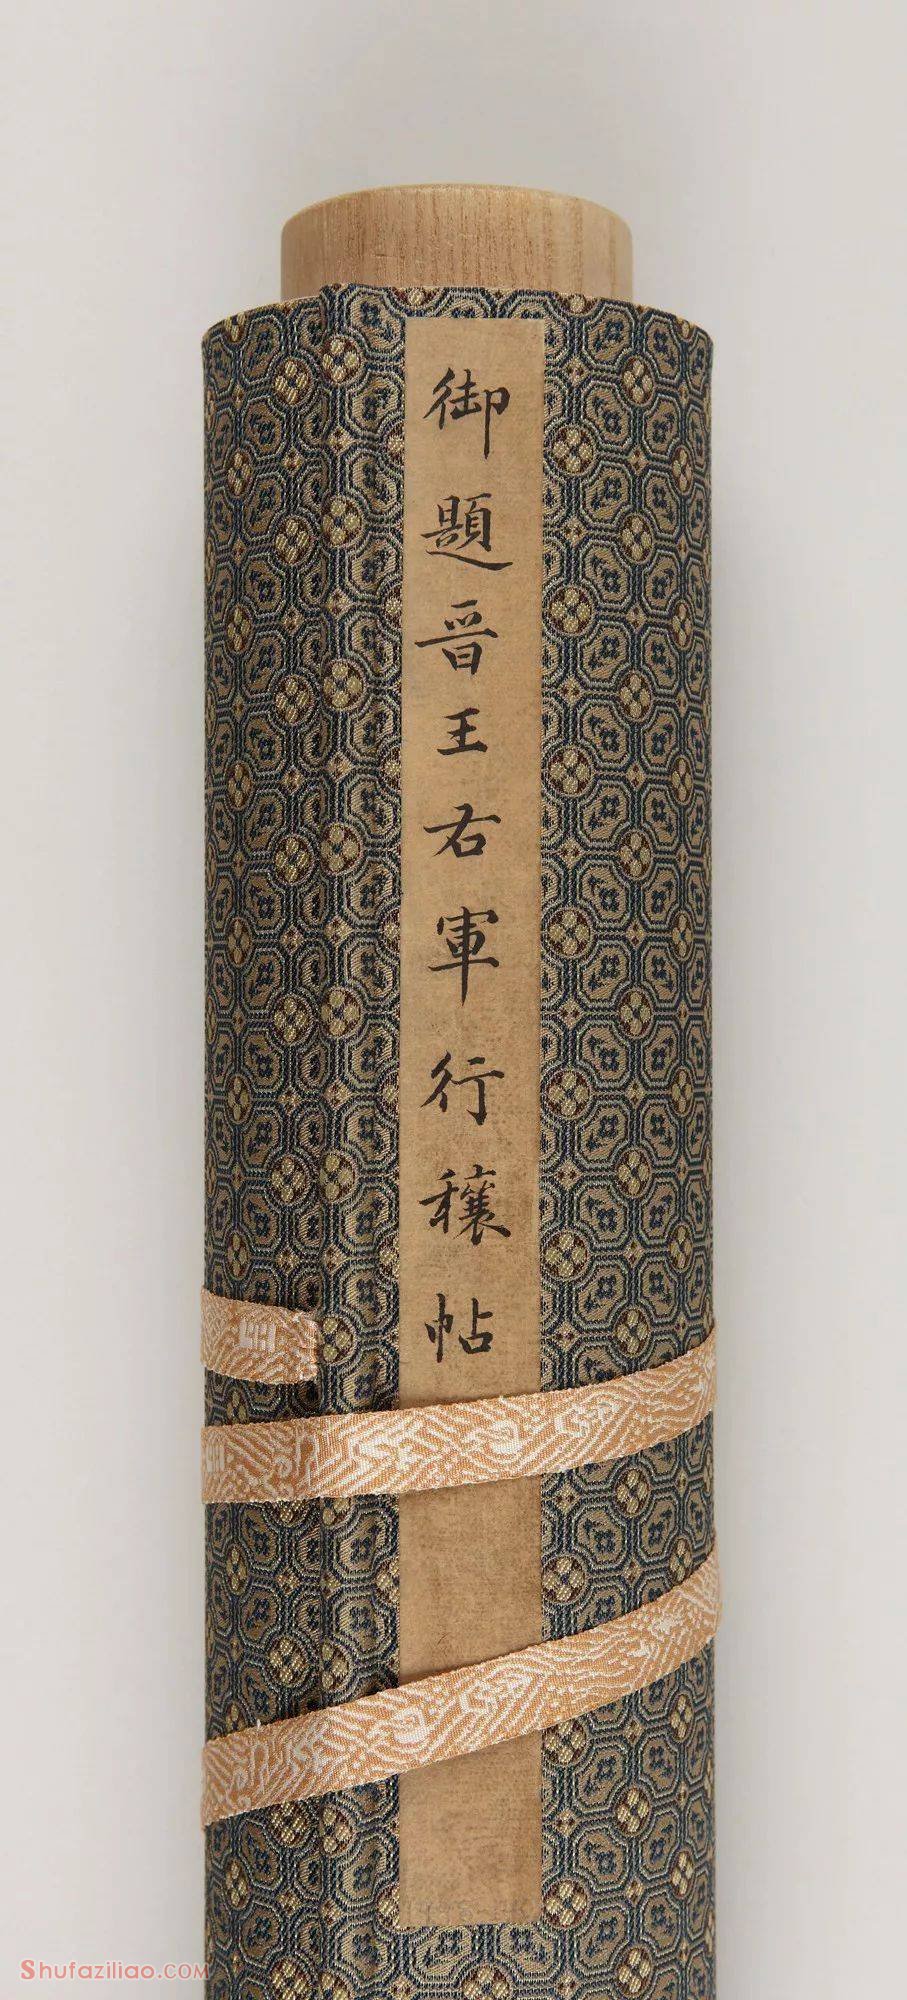 御題晉王右軍行穰帖
Shufaziliao.com